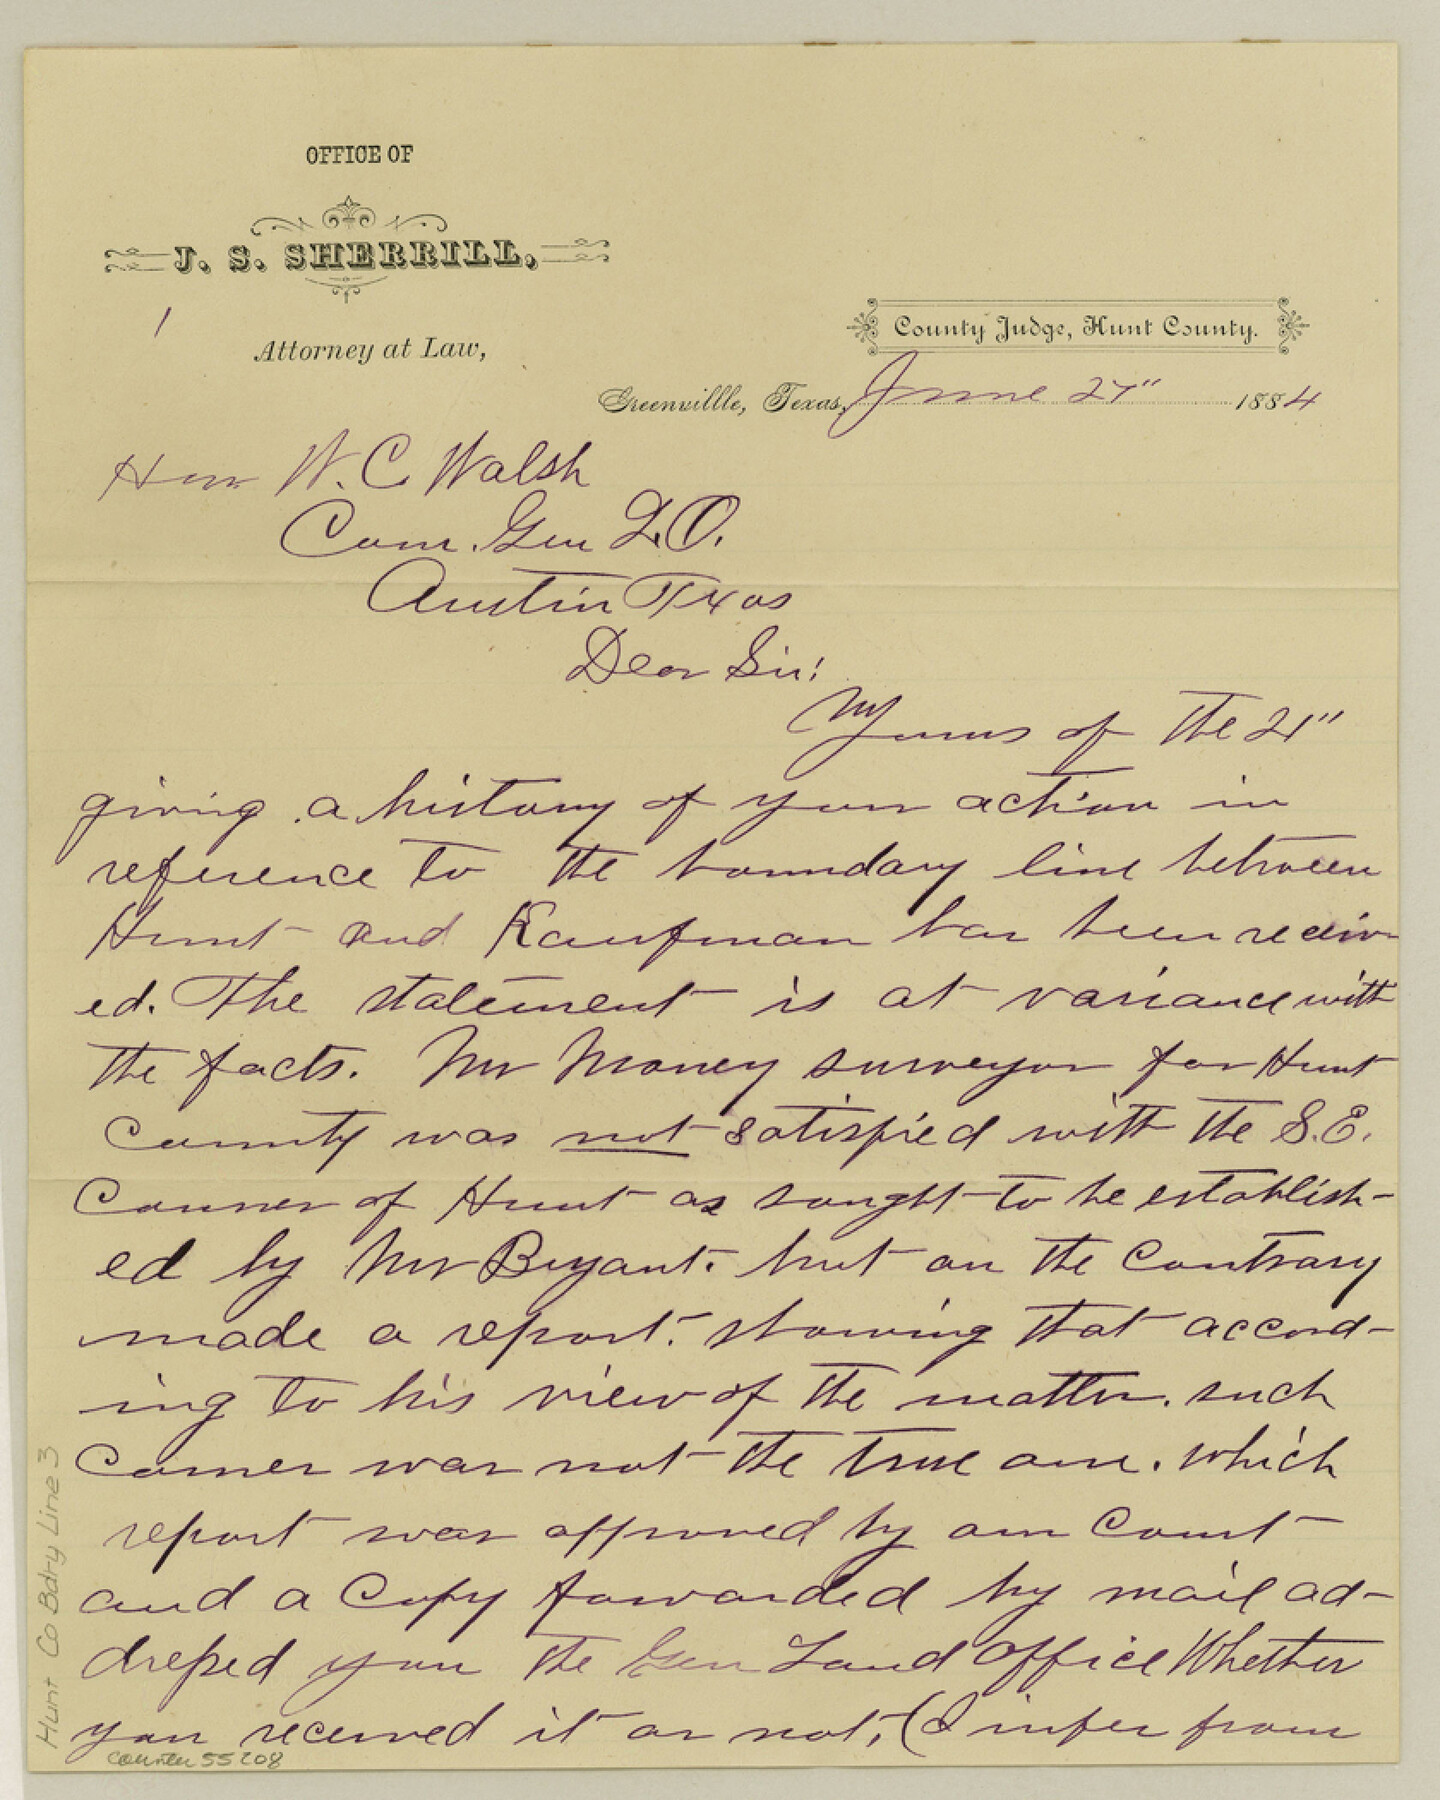 OFFICE OF
J. S. SHERRILL,
1
Attorney at Law,
County Judge, Hunt County.
Greenvillle, Texas, June 27" 1884
Hon W. C. Walsh
Com. Gen L.O.
Austin Texas
Dear Sir!
Yours of the 21"
giving a history of your action in
reference to the boundary line between
Hunt and Kaufman has been receiv
ed. The statement is at variance with
the facts. Mr Money surveyor for Hunt
County was not satisfied with the S.E.
Corner of Hunt as sought to be establish-
ed by Mr Bryant. but on the contrary
made a report. showing that accord-
ing to his view of the matter. such
Corner was not the true one. which
report was approved by our Court
and a Copy forwarded by mail ad-
dressed you the Gen Land Office Whether
you received it or not, (I infer from
Hunt Co Bdry Line 3
counter 55208